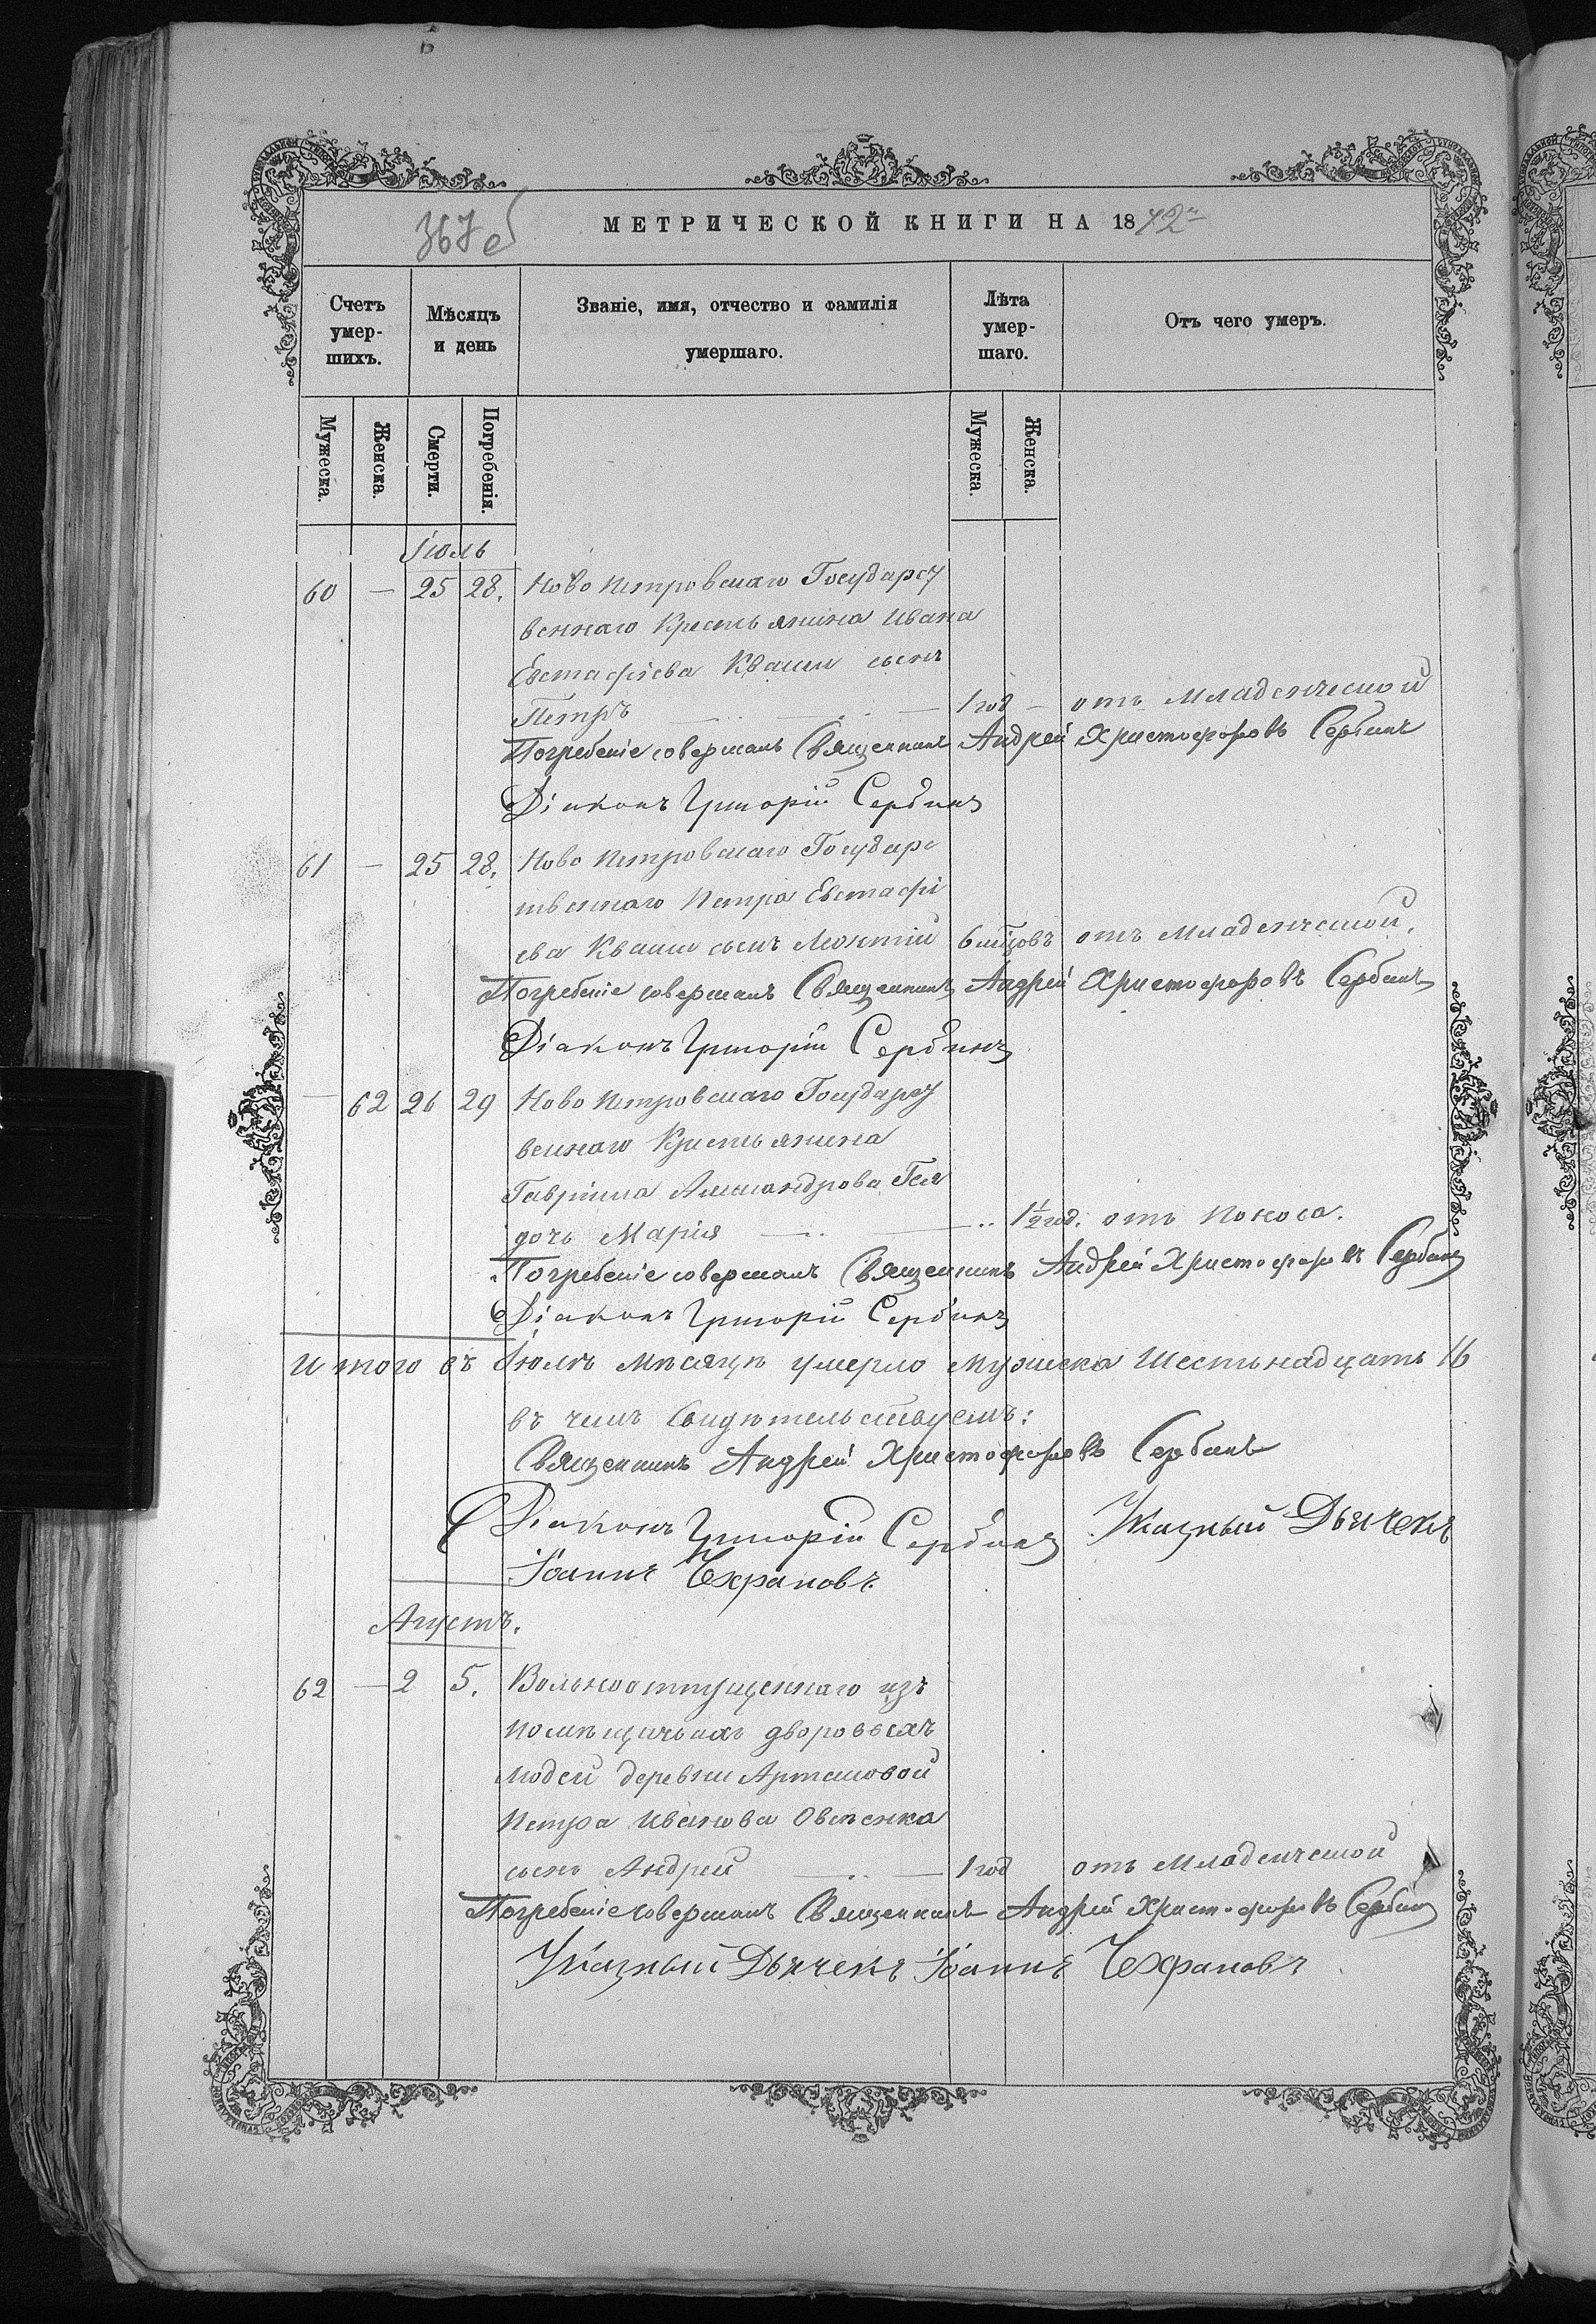 367 об
МЕТРИЧЕСКОЙ КНИГИ НА 1872
Счетъ умер-шихъ.
Мѣсяцъ и день
Званіе, имя, отчество и фамилія умершаго.
Лѣта умер-шаго.
Отъ чего умеръ.
Мужеска. Женска. Смерти. Погребенія. Мужеска. Женска.
Іюль
60 — 25 28. Ново Петровскаго Государст
веннаго Крестьянина Ивана
Евстафіева Кваши сынъ
Петръ — 1 год — отъ Младенческой
Погребеніе совершалъ Священникъ Андрей Христофоровъ Сербинъ
Діаконъ Григорій Сербинъ
61 — 25 28. Ново Петровскаго Государс
твеннаго Петра Евстафі
ева Кваши сынъ Леонтій 6 мцовъ отъ Младенческой.
Погребеніе совершалъ Священникъ Андрей Христофоровъ Сербинъ
Діаконъ Григорій Сербинъ
— 62 26 29 Ново Петровскаго Государст
веннаго Крестьянина
Гавріила Александрова
дочь Марія — 1½ год. отъ Поноса.
Погребеніе совершалъ Священникъ Андрей Христофоровъ Сербинъ
Діаконъ Григорій Сербинъ
Итого въ Іюлѣ Мѣсяцѣ умерло Мужеска Шестьнадцать 16
въ чемъ Свидѣтельствуемъ:
Священникъ Андрей Христофоровъ Сербинъ
Діаконъ Григорій Сербинъ Указный Дьячекъ
Іоаннъ Чехрановъ
Августъ.
62 — 2 5. Вольноотпущеннаго изъ
помѣщичьихъ дворовыхъ
людей деревни Артемовой
Петра Иванова Овсѣенка
сынъ Андрей — 1 год отъ Младенческой
Погребеніе совершалъ Священникъ Андрей Христофоровъ Сербинъ
Указный Дьячекъ Іоаннъ Чехрановъ